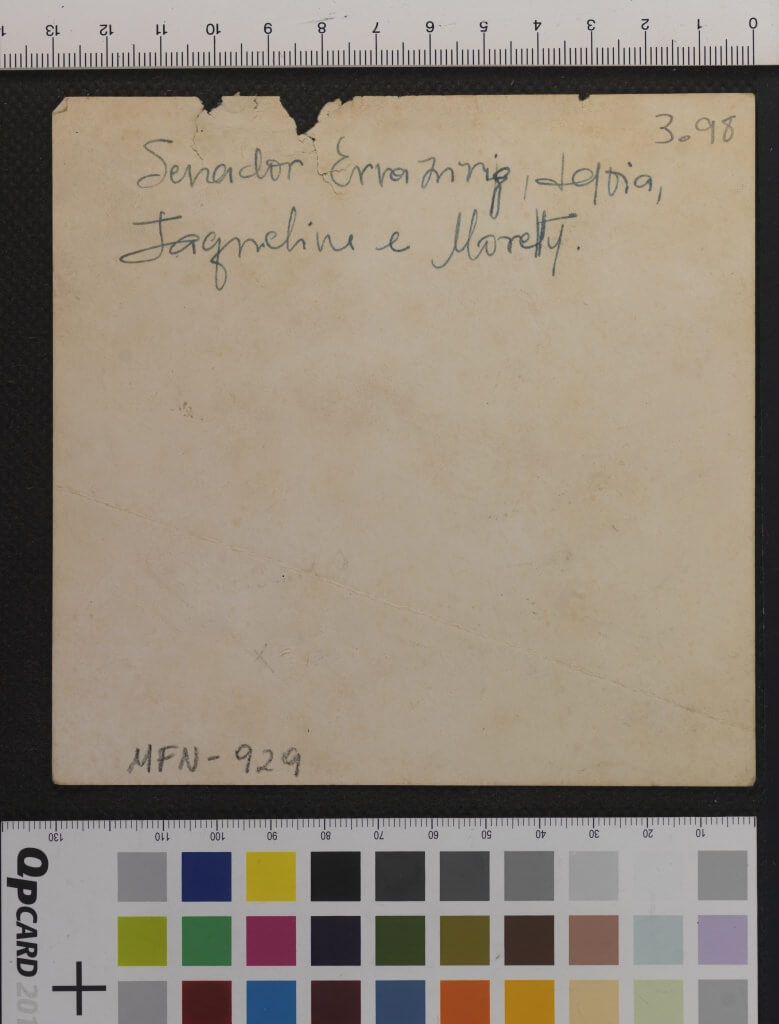 0 1 2 3 4 5 6 7 8 9 10 11 12 13
3.98
Senador
Jaqueline e Moretty.
MFN-929
10 20 30 40 50 60 70 80 90 100 110 130
QPCARD 201